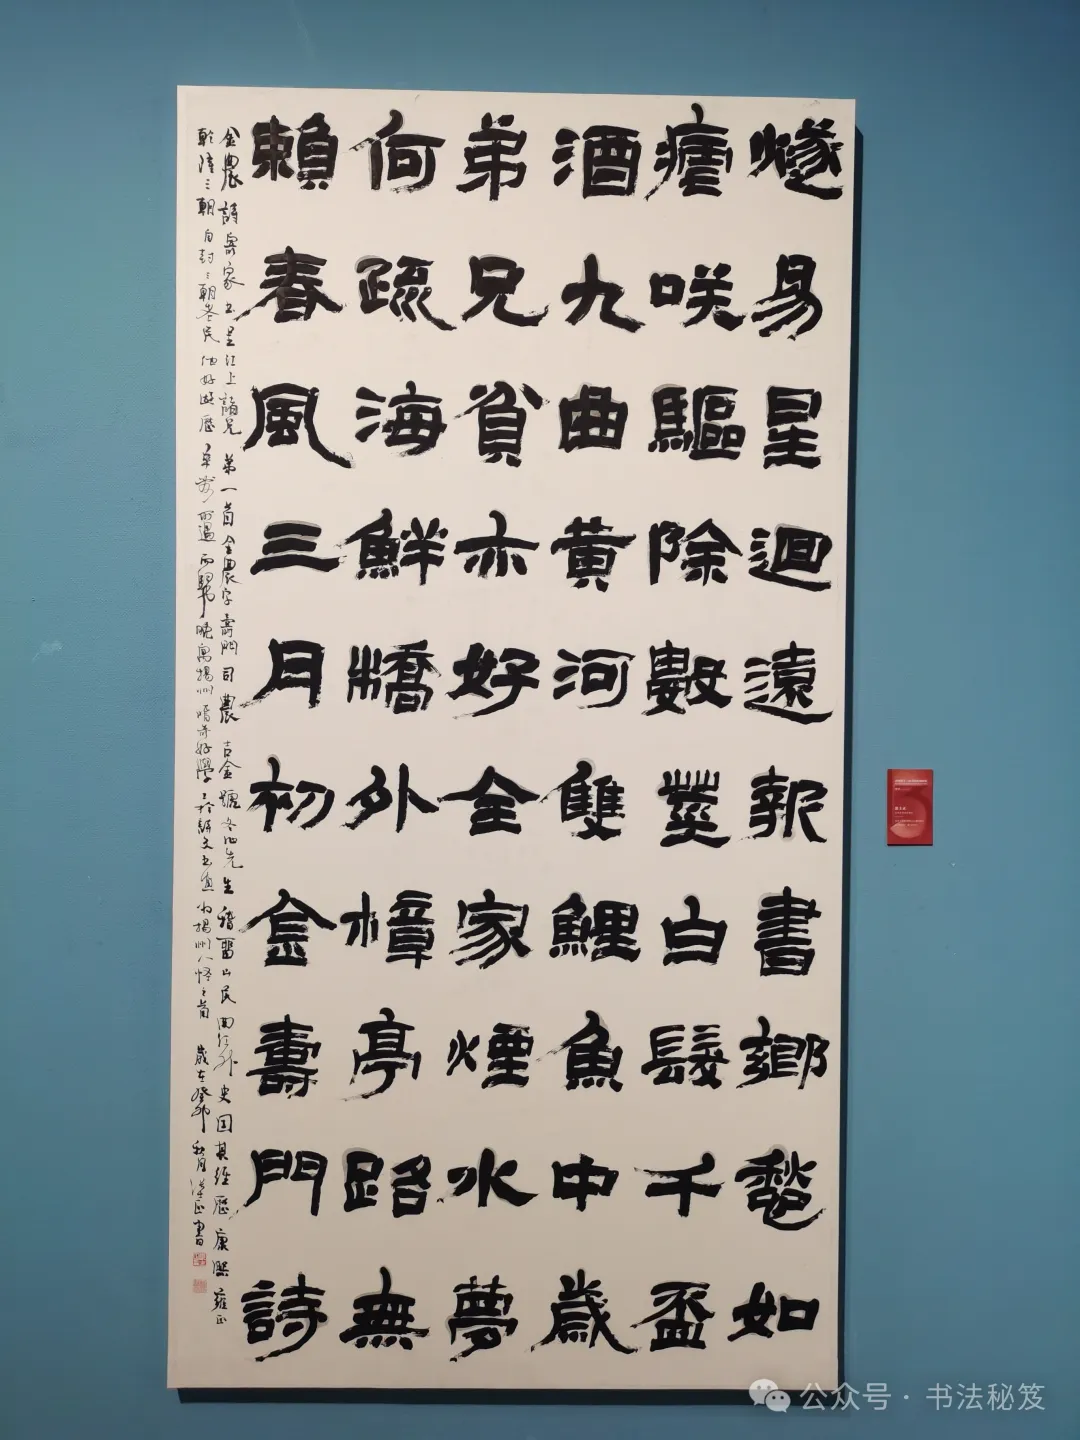 燧易星迴遠報書鄉愁如
瘧咲驅除數莖白髮千盃
酒九曲黃河雙鯉魚中歲
弟兄貧亦好全家煙水夢
何疏海鮮犞外樟亭路無
賴春風三月初金壽門詩
金農詩寄家書呈江上諸兄弟一首金農字壽門司農吉金號冬心先生稽留山民曲江外史因其經歷康熙雍正
乾隆三朝自封三朝老民他好遊歷卒無所遇而歸晚寓揚州嗜奇好學工於詩文書畫為揚州八怪之首歲在癸卯秋月 正書
公众号·书法秘笈